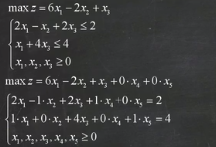 max z = 6x₁ − 2x₂ + x₃
2x₁ − x₂ + 2x₃ ≤ 2
x₁ + 4x₃ ≤ 4
x₁, x₂, x₃ ≥ 0
max z = 6x₁ − 2x₂ + x₃ + 0·x₄ + 0·x₅
2x₁ − 1·x₂ + 2x₃ + 1·x₄ + 0·x₅ = 2
1·x₁ + 0·x₂ + 4x₃ + 0·x₄ + 1·x₅ = 4
x₁, x₂, x₃, x₄, x₅ ≥ 0